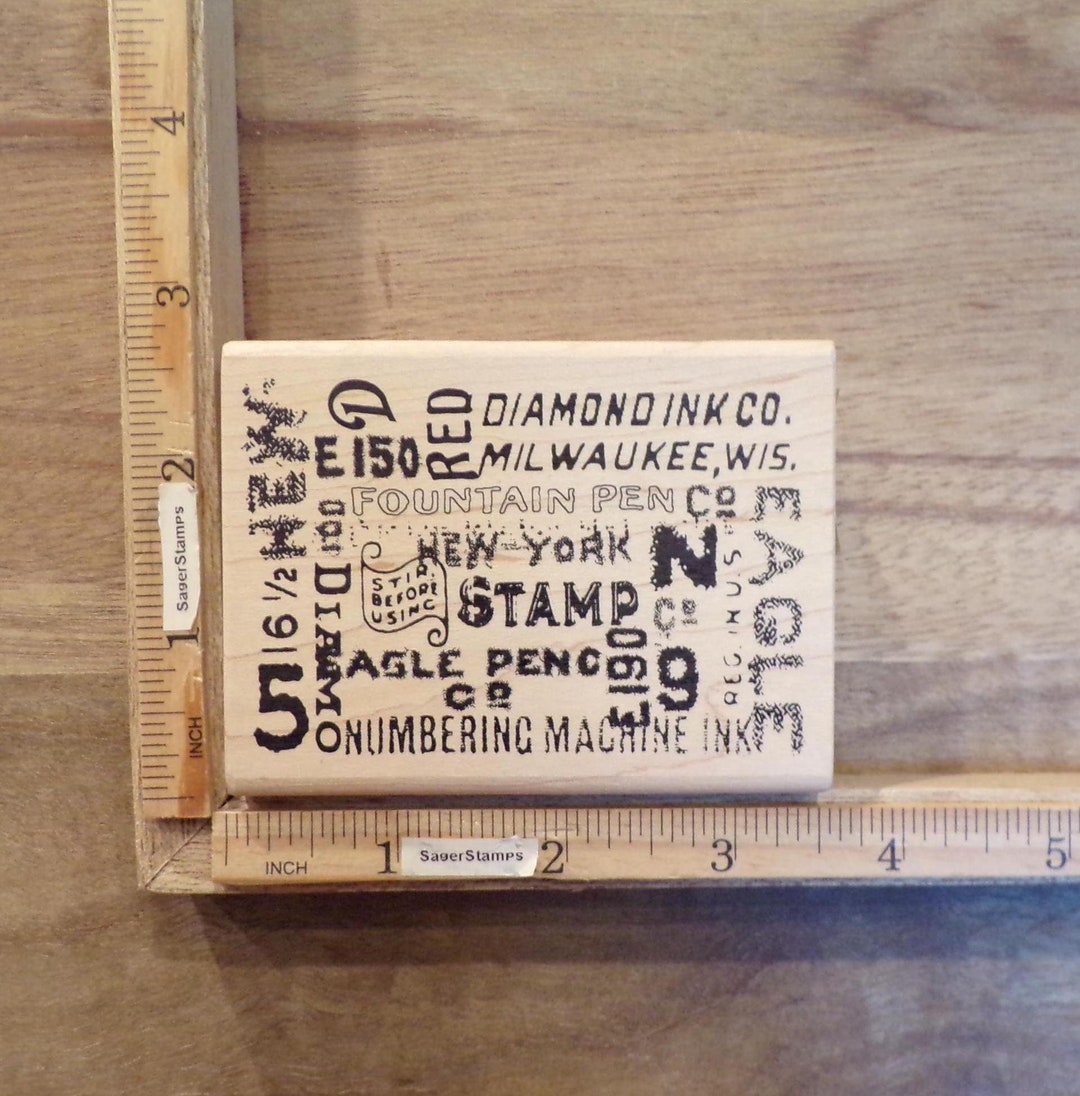 4
3
2
SagerStamps
1
INCH
NEW
D
E 150
RED
DIAMOND INK CO.
MILWAUKEE, WIS.
FOUNTAIN PEN Co
EAGLE
NEW YORK
N
16 1/2
DIAMO
STIR
BEFORE
USING
STAMP
Co
E190
9
AGLE PENC
Co
5
NUMBERING MACHINE INK
INCH
1
SagerStamps
2
3
4
5